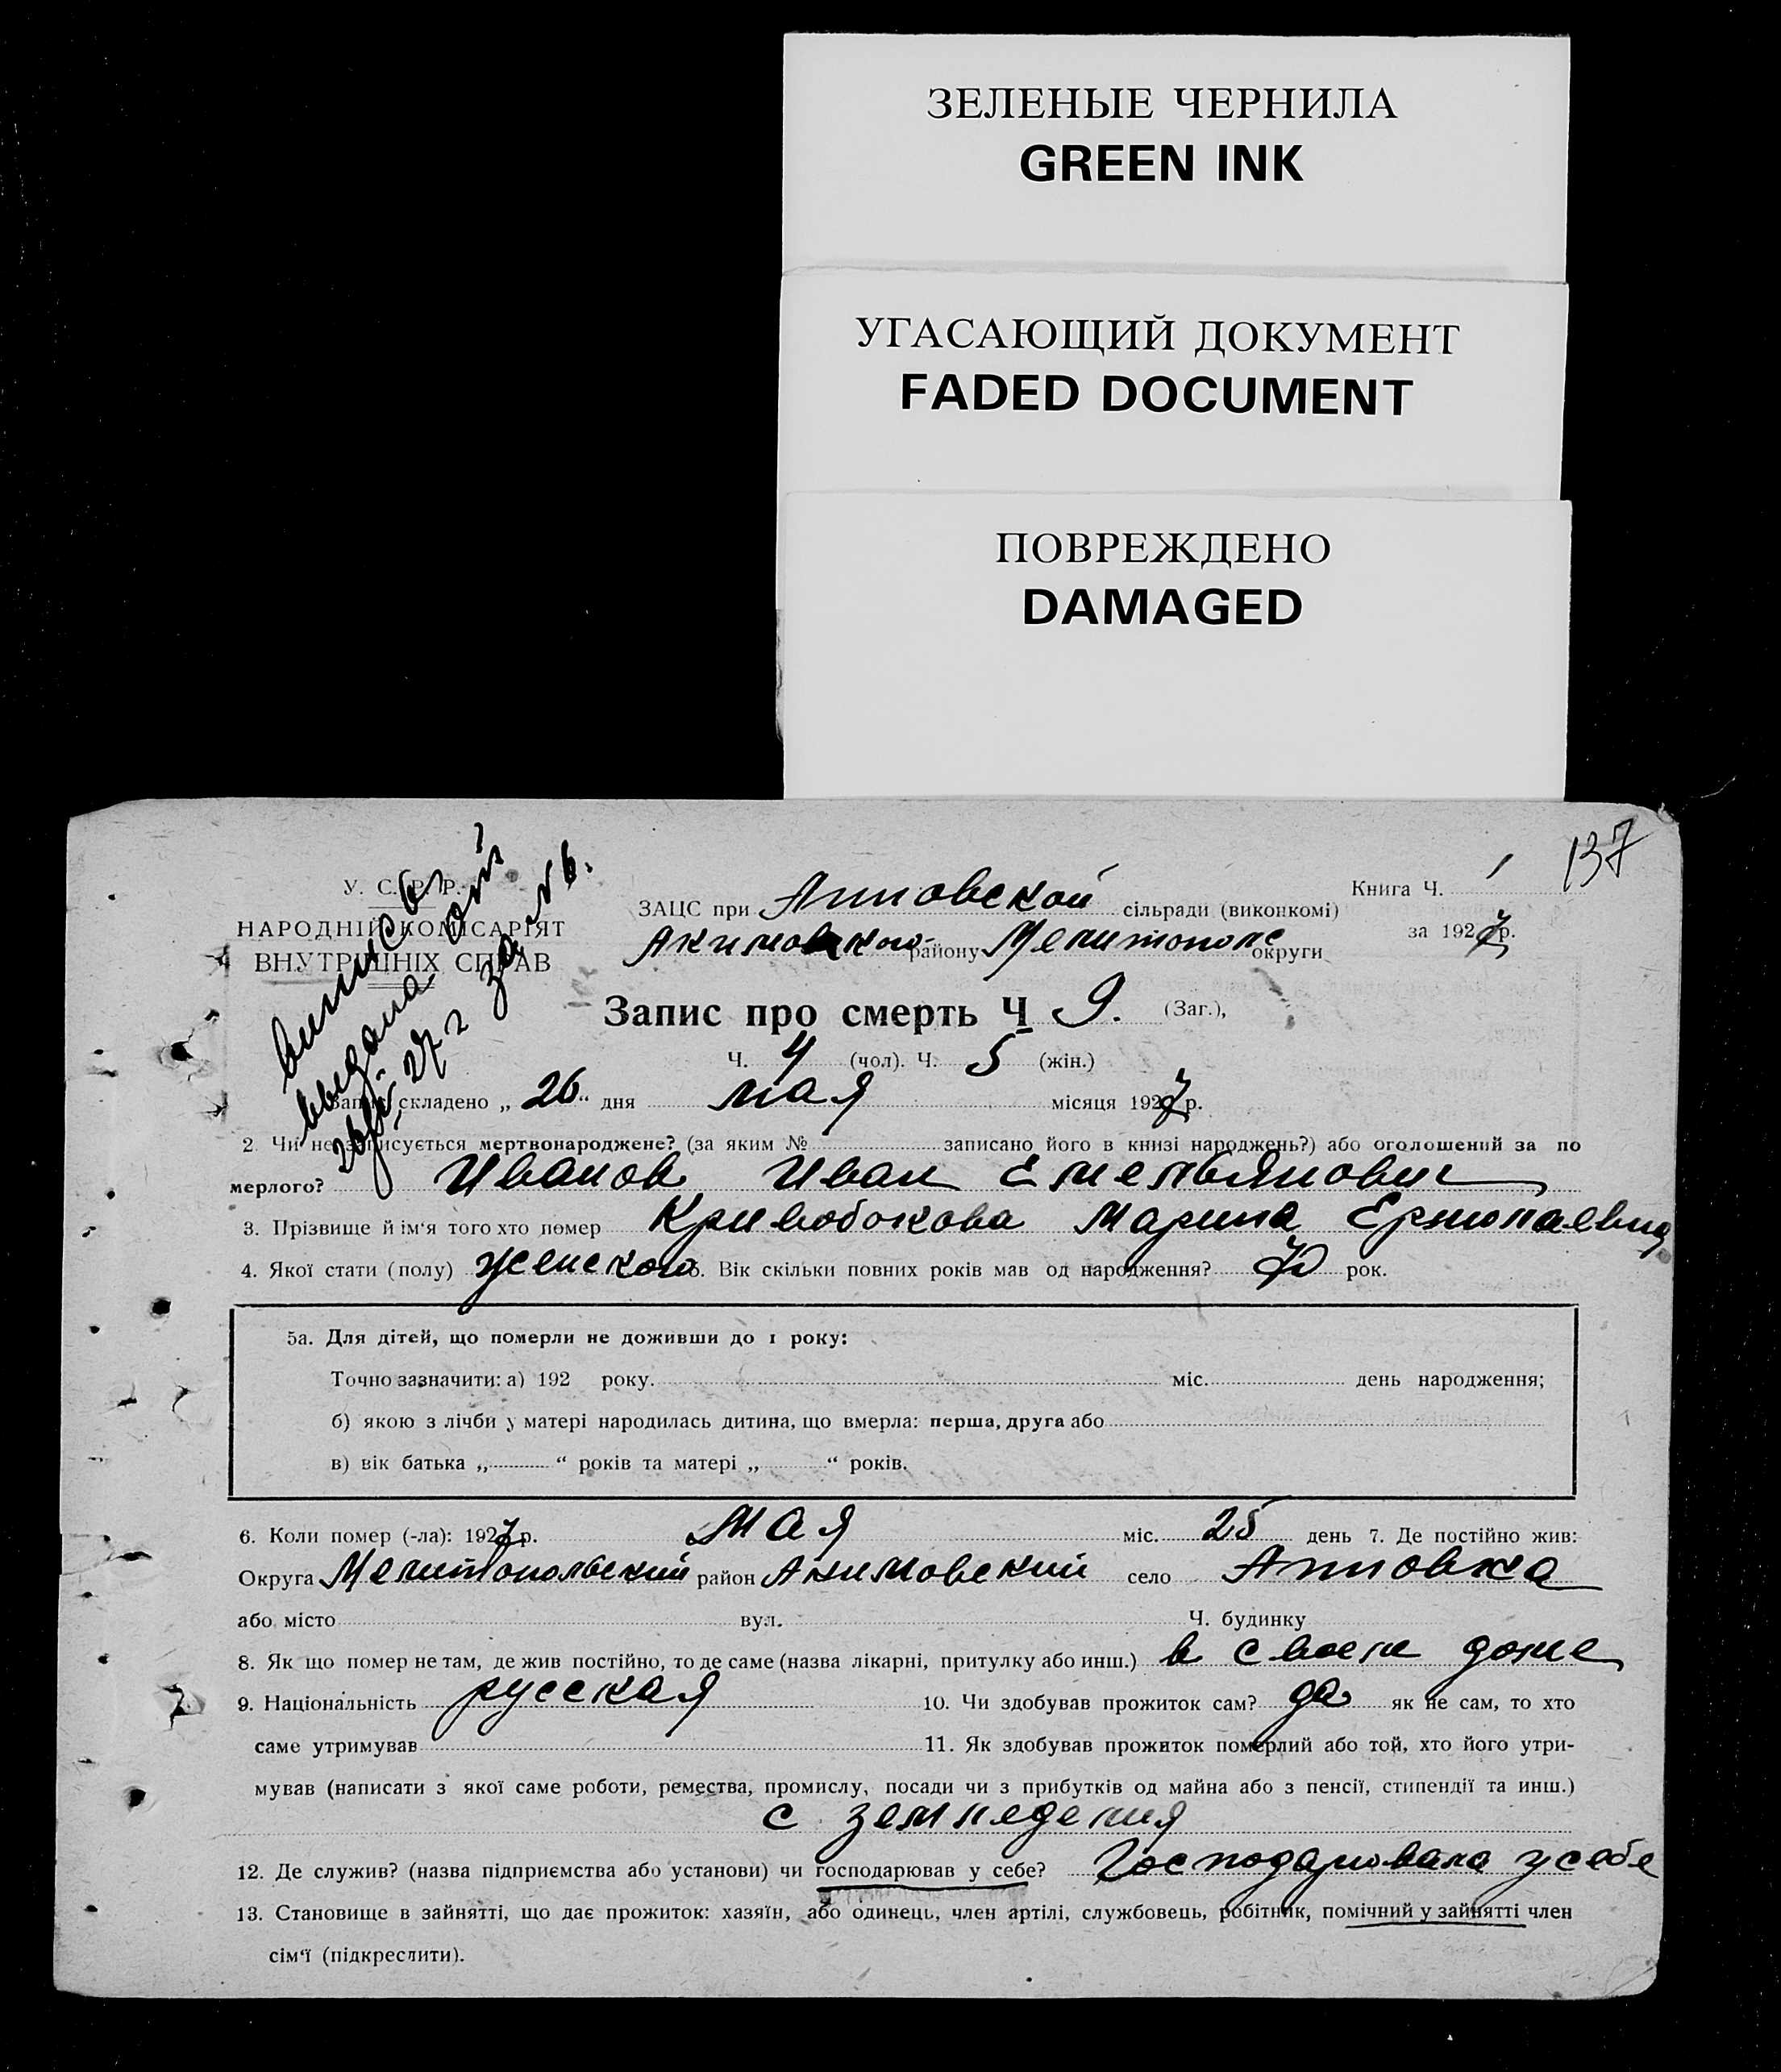 ЗЕЛЕНЫЕ ЧЕРНИЛА
GREEN INK
УГАСАЮЩИЙ ДОКУМЕНТ
FADED DOCUMENT
ПОВРЕЖДЕНО
DAMAGED
137
У. С. Р. Р.
НАРОДНІЙ КОМІСАРІЯТ
ВНУТРІШНІХ СПРАВ
выпись
выдана
за № 6.
ЗАЦС при Анновской сільради (виконкомі)
Книга Ч. 1
Акимовского району Мелитопольс округи
за 1927 р.
Запис про смерть Ч 9. (Заг.),
Ч. 4 (чол). Ч. 5 (жін.)
Запис складено „ 26 “ дня мая місяця 1927 р.
2. Чи не записується мертвонароджене? (за яким № записано його в книзі народжень?) або оголошений за по
мерлого? Иванов Иван Емельянович
3. Прізвище й ім‘я того хто помер Кривобокова Марина Ермолаевна
4. Якої стати (полу) женского 5. Вік скільки повних років мав од народження? 70 рок.
5а. Для дітей, що померли не доживши до 1 року:
Точно зазначити: а) 192 року. міс. день народження;
б) якою з лічби у матері народилась дитина, що вмерла: перша, друга або
в) вік батька „ “ років та матері „ “ років.
6. Коли помер (-ла): 1927 р. мая міс. 25 день 7. Де постійно жив:
Округа Мелитопольский район Акимовский село Анновка
або місто вул. Ч. будинку
8. Як що помер не там, де жив постійно, то де саме (назва лікарні, притулку або инш.) в своем доме
9. Національність русская 10. Чи здобував прожиток сам? да як не сам, то хто
саме утримував 11. Як здобував прожиток померлий або той, хто його утри-
мував (написати з якої саме роботи, ремества, промислу, посади чи з прибутків од майна або з пенсії, стипендії та инш.)
с земледелия
12. Де служив? (назва підприємства або установи) чи господарював у себе? Господаровала у себе
13. Становище в зайнятті, що дає прожиток: хазяїн, або одинець, член артілі, службовець, робітник, помічний у зайнятті член
сім‘ї (підкреслити).